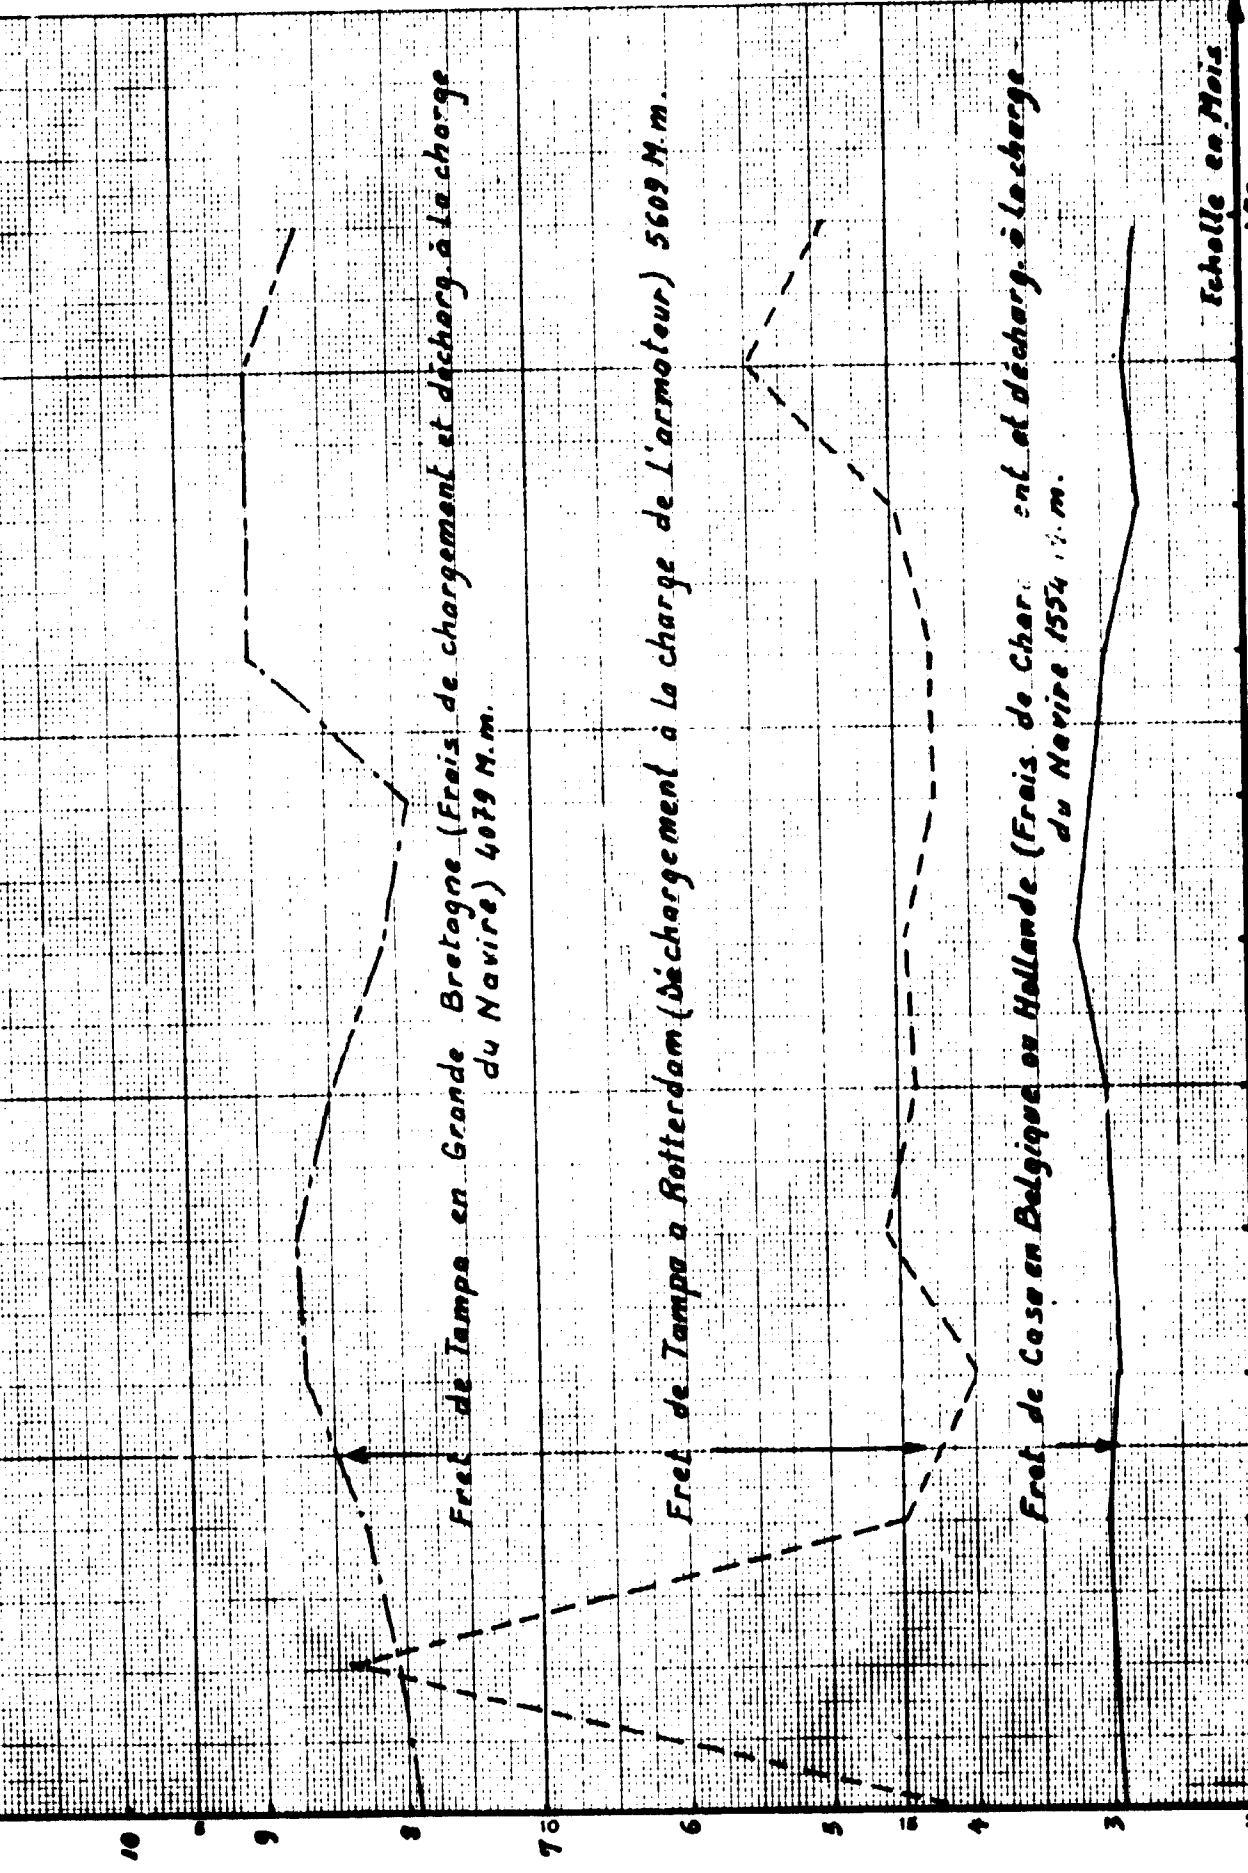 Fret de Tampa en Grande Bretagne (Frais de chargement et décharg. à la charge
du Navire) 4079 M.m.
Fret de Tampa a Rotterdam (Déchargement à la charge de L'armateur) 5609 M.m.
Fret de Casa en Belgique ou Hollande (Frais de Char ent et décharg. à la charge
du Navire 1554 m.
Echelle en Mois
10
9
8
7
6
5
4
3